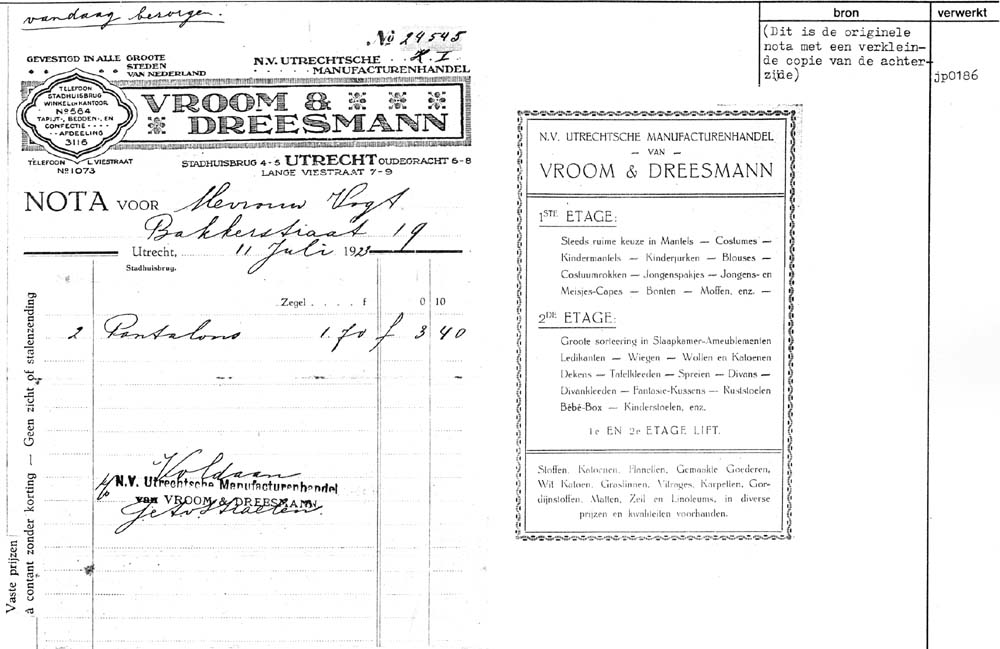 vandaag bezorgen.
No 24545
GEVESTIGD IN ALLE GROOTE
STEDEN
VAN NEDERLAND
N.V. UTRECHTSCHE
MANUFACTURENHANDEL
TELEFOON
STADHUISBRUG
WINKEL EN KANTOOR
No 564
TAPIJT-, BEDDEN-, EN
CONFECTIE-
AFDEELING
3116
VROOM &
DREESMANN
TELEFOON L. VIESTRAAT
No 1073
STADHUISBRUG 4-5 UTRECHT OUDEGRACHT 6-8
LANGE VIESTRAAT 7-9
NOTA VOOR Mevrouw Vogt
Bakkerstraat 19
Utrecht, 11 Juli 1923
Stadhuisbrug.
Zegel . . . . f 0 10
2 Pantalons 1.70 f 3 40
Voldaan
N.V. Utrechtsche Manufacturenhandel
van VROOM & DREESMANN
Vaste prijzen
à contant zonder korting — Geen zicht of stalenzending
N.V. UTRECHTSCHE MANUFACTURENHANDEL
— VAN —
VROOM & DREESMANN
1STE ETAGE:
Steeds ruime keuze in Mantels — Costumes —
Kindermantels — Kinderjurken — Blouses —
Costuumrokken — Jongenspakjes — Jongens- en
Meisjes-Capes — Bonten — Moffen, enz. —
2DE ETAGE:
Groote sorteering in Slaapkamer-Ameublementen
Ledikanten — Wiegen — Wollen en Katoenen
Dekens — Tafelkleeden — Spreien — Divans —
Divankleeden — Fantasie-Kussens — Ruststoelen
Bébé-Box — Kinderstoelen, enz.
1e EN 2e ETAGE LIFT.
Stoffen, Katoenen, Flanellen, Gemaakte Goederen,
Wit Katoen, Graslinnen, Vitrages, Karpetten, Gor-
dijnstoffen, Matten, Zeil en Linoleums, in diverse
prijzen en kwaliteiten voorhanden.
bron
(Dit is de originele
nota met een verklein-
de copie van de achter-
zijde)
verwerkt
jp0186